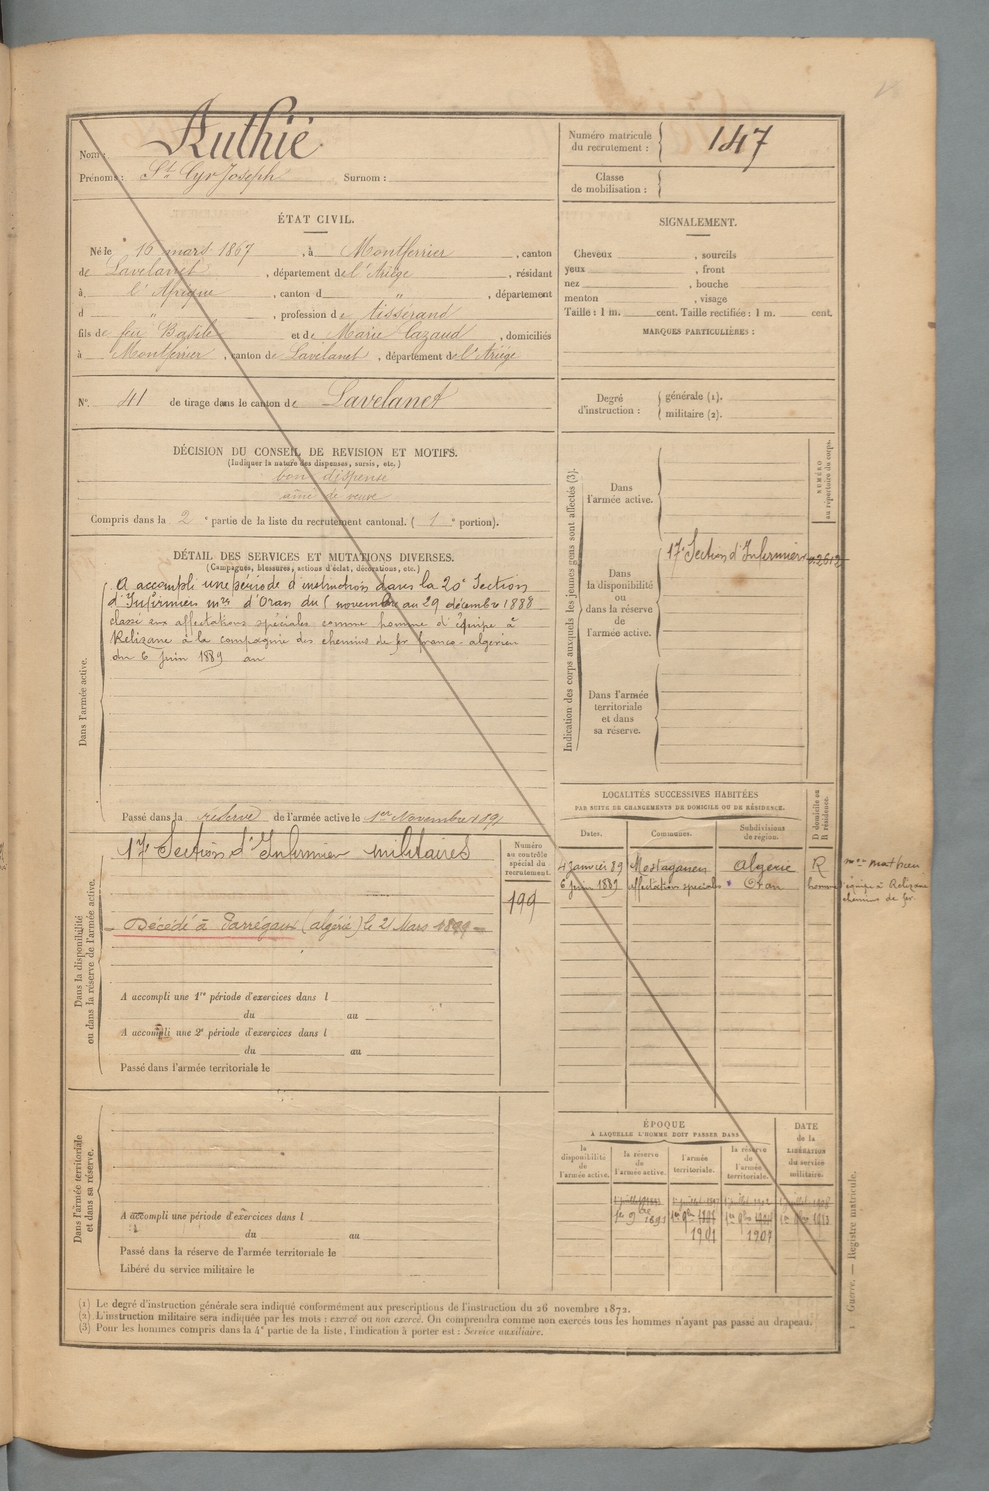 Nom : Authié
Prénoms : St Cyr Joseph Surnom :
Numéro matricule du recrutement : 147
Classe de mobilisation :
ÉTAT CIVIL.
Né le 16 mars 1867, à Montferrier, canton
de Lavelanet, département de l'Ariège, résidant
à l'Afrique, canton d " , département
d " , profession de tisserand
fils de feu Basile et de Marie Cazaud, domiciliés
à Montferrier, canton de Lavelanet, département de l'Ariège
N° 41 de tirage dans le canton de Lavelanet
SIGNALEMENT.
Cheveux , sourcils
yeux , front
nez , bouche
menton , visage
Taille : 1 m. cent. Taille rectifiée : 1 m. cent.
MARQUES PARTICULIÈRES :
Degré d'instruction : générale (1).
militaire (2).
DÉCISION DU CONSEIL DE REVISION ET MOTIFS.
(Indiquer la nature des dispenses, sursis, etc.)
bon dispensé
aîné de veuve
Compris dans la 2e partie de la liste du recrutement cantonal. (1e portion).
DÉTAIL DES SERVICES ET MUTATIONS DIVERSES.
(Campagnes, blessures, actions d'éclat, décorations, etc.)
Dans l'armée active.
A accompli une période d'instruction dans la 20e Section
d'Infirmiers mres d'Oran du novembre au 29 décembre 1888
classé aux affectations spéciales comme homme d'équipe à
Relizane à la compagnie des chemins de fer franco-algérien
du 6 Juin 1889 au
Passé dans la réserve de l'armée active le 1er Novembre 1891
Indication des corps auxquels les jeunes gens sont affectés (3).
NUMÉRO au répertoire du corps.
Dans l'armée active.
Dans la disponibilité ou dans la réserve de l'armée active.
17e Section d'Infirmiers
Dans l'armée territoriale et dans sa réserve.
Dans la disponibilité ou dans la réserve de l'armée active.
17e Section d'Infirmiers militaires
Numéro au contrôle spécial du recrutement.
199
Décédé à Perrégaux (algérie) le 21 Mars 1899
A accompli une 1re période d'exercices dans l
du au
A accompli une 2e période d'exercices dans l
du au
Passé dans l'armée territoriale le
LOCALITÉS SUCCESSIVES HABITÉES
PAR SUITE DE CHANGEMENTS DE DOMICILE OU DE RÉSIDENCE.
D domicile ou R résidence.
Dates. Communes. Subdivisions de région.
4 janvier 89 Mostaganem Algérie R
6 juin 1889 affectation spéciale Oran homme d'équipe à Relizane
chemins de fer
Dans l'armée territoriale et dans sa réserve.
A accompli une période d'exercices dans l
du au
Passé dans la réserve de l'armée territoriale le
Libéré du service militaire le
ÉPOQUE
A LAQUELLE L'HOMME DOIT PASSER DANS
la disponibilité de l'armée active.
la réserve de l'armée active.
l'armée territoriale.
la réserve de l'armée territoriale.
DATE de la LIBÉRATION du service militaire.
1er 9bre 1891
1901 1907
(1) Le degré d'instruction générale sera indiqué conformément aux prescriptions de l'instruction du 26 novembre 1872.
(2) L'instruction militaire sera indiquée par les mots : exercé ou non exercé. On comprendra comme non exercés tous les hommes n'ayant pas passé au drapeau.
(3) Pour les hommes compris dans la 4e partie de la liste, l'indication à porter est : Service auxiliaire.
Guerre. — Registre matricule.